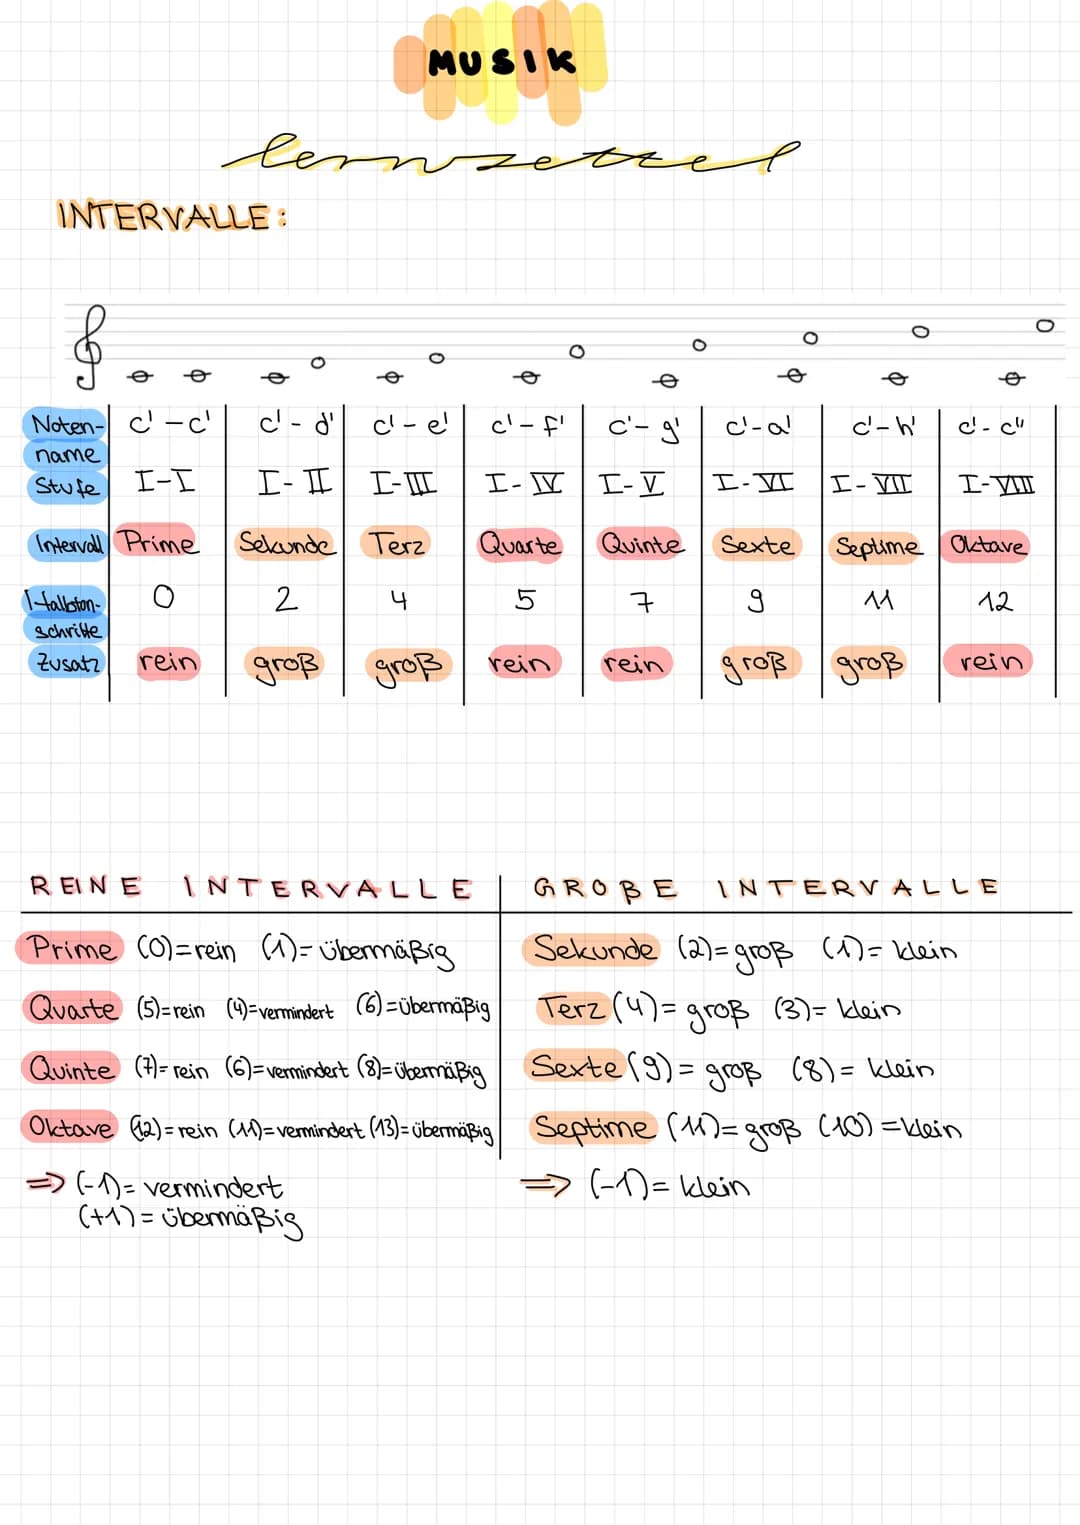 MUSIK
lernzettel
INTERVALLE:
Noten-name c' - c' c' - d' c' - e' c' - f' c' - g' c' - a' c' - h' c' - c''
Stufe I-I I-II I-III I-IV I-V I-VI I-VII I-VIII
Intervall Prime Sekunde Terz Quarte Quinte Sexte Septime Oktave
Halbton-schritte 0 2 4 5 7 9 11 12
Zusatz rein groß groß rein rein groß groß rein
REINE INTERVALLE
Prime (0)=rein (1)=übermäßig
Quarte (5)=rein (4)=vermindert (6)=übermäßig
Quinte (7)=rein (6)=vermindert (8)=übermäßig
Oktave (12)=rein (11)=vermindert (13)=übermäßig
=> (-1)= vermindert
(+1)= übermäßig
GROßE INTERVALLE
Sekunde (2)=groß (1)=klein
Terz (4)= groß (3)= klein
Sexte (9)= groß (8)= klein
Septime (11)=groß (10)=klein
=> (-1)= klein